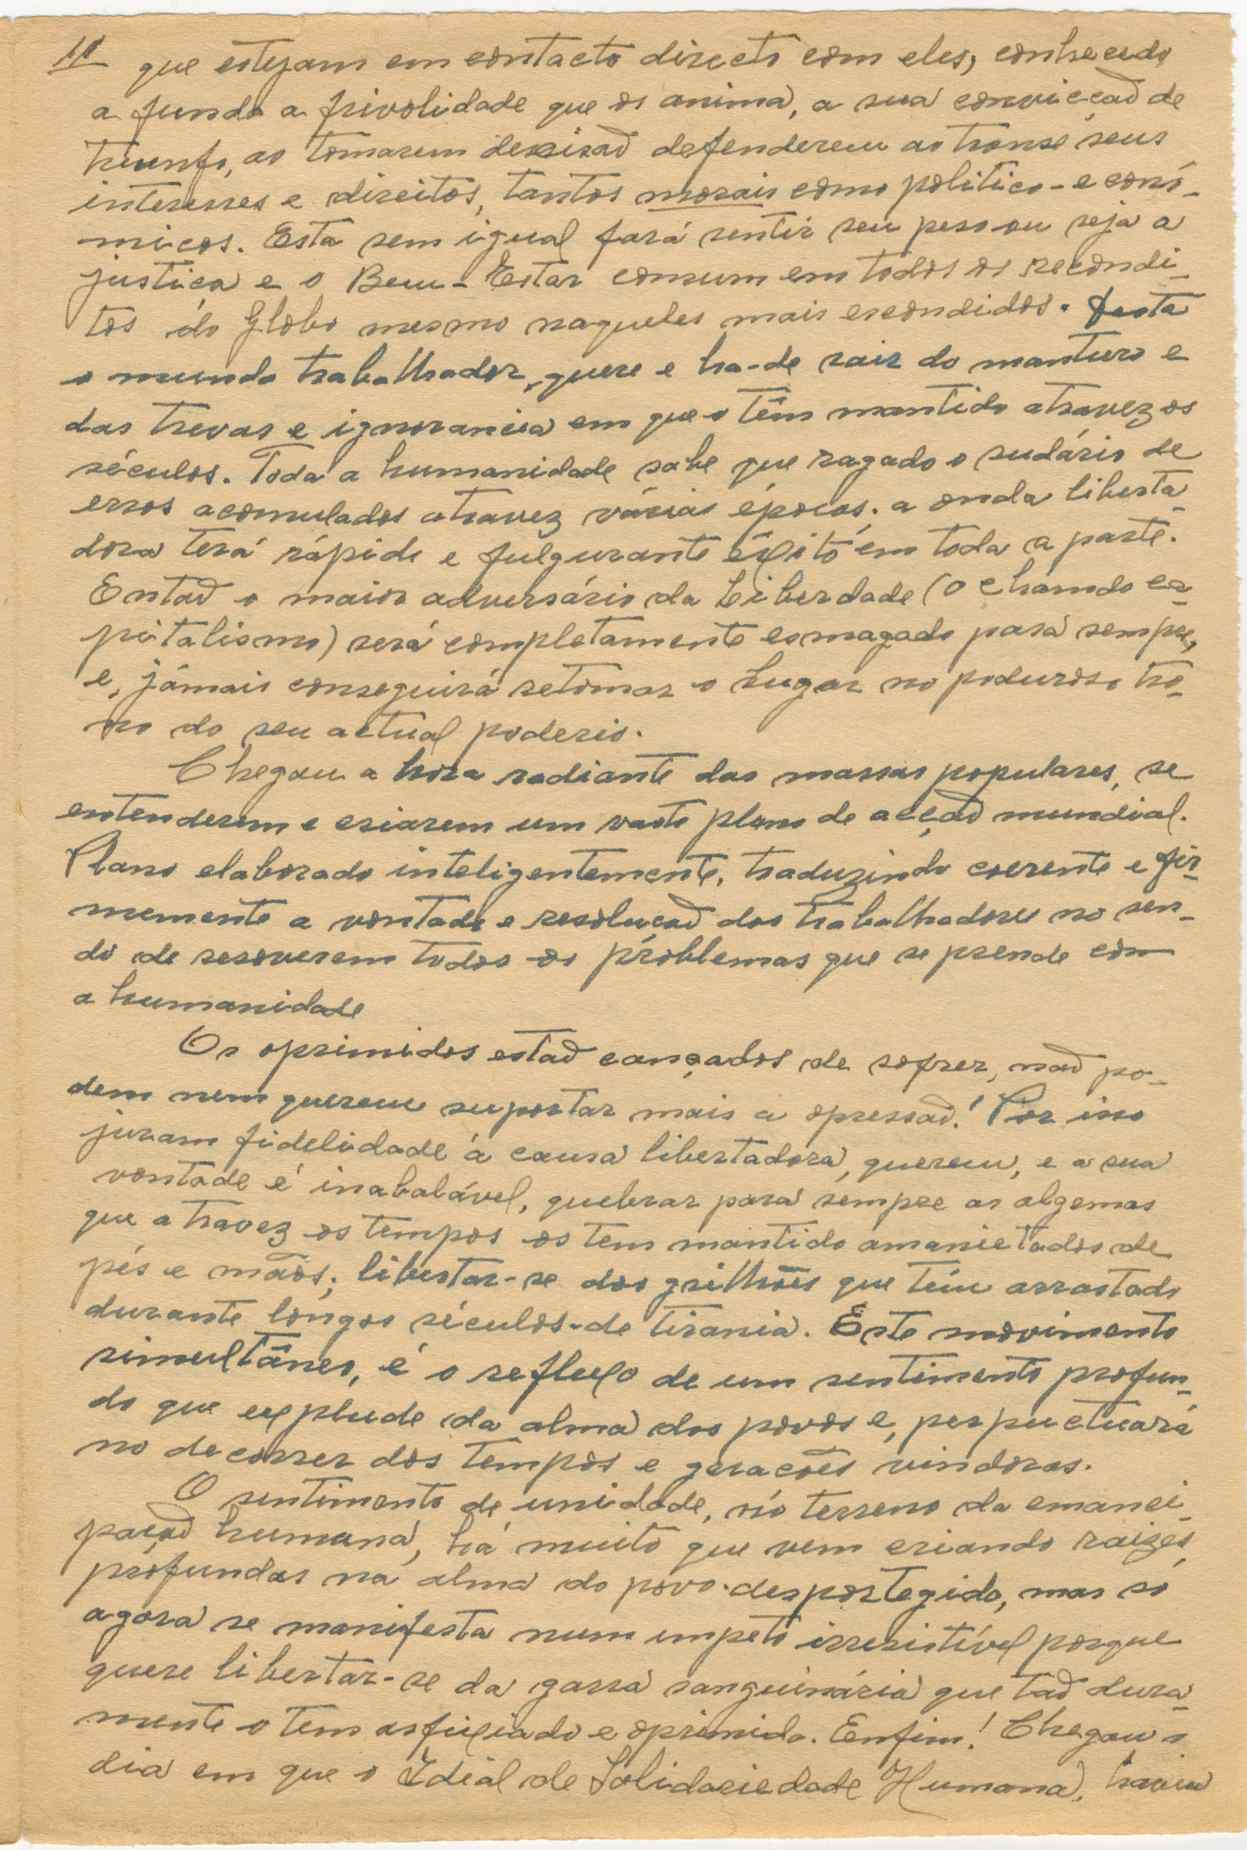 10 que estejam em contacto directo com eles, conhecendo
a fundo a frivolidade que os anima, a sua convicçaõ de
triunfo, ao tomarem decisaõ defenderem ao transe seus
interesses e direitos, tantos morais como politico-econó-
micos. Esta sem igual fará sentir seu peso ou seja a
justiça e o Bem-Estar comum em todos os recondi-
tos do Globo mesmo naqueles mais escondidos.
o mundo trabalhador, quere e ha-de sair do manturo e
das trevas e ignorancia em que o têm mantido atravez os
séculos. Toda a humanidade sabe que ragado o sudário de
erros acomulados atravez várias épocas. a onda liberta-
dora terá rápido e fulgurante êxito em toda a parte.
Entaõ o maior adversário da Liberdade (o chamdo ca-
pitalismo) será completamente esmagado para sempre,
e, jámais conseguirá retomar o lugar no poduroso tro-
no do seu actual poderio.
Chegou a hora radiante das massas populares, se
entenderem e criarem um vasto plano de acçaõ mundial.
Plano elaborado inteligentemente, traduzindo coerente e fir-
memente a vontade e resoluçaõ dos trabalhadores no sen-
do de resoverem todos os problemas que se prende com
a humanidade
Os oprimidos estaõ cançados de sofrer, naõ po-
dem nem querem suportar mais a opressaõ! Por isso
juram fidelidade á causa libertadora, querem, e a sua
vontade é inabalável, quebrar para sempre as algemas
que atravez os tempos os tem mantido amanietados de
pés e mãos; libertar-se dos grilhões que têm arrastado
durante longos séculos de tirania. Este movimento
simultâneo, é o refluxo de um sentimento profun-
do que explude da alma dos povos e, perpuctuará
no decorrer dos tempos e gerações vindoras.
O sentimento de unidade, no terreno da emanci-
paçaõ humana, há muito que vem criando raizes,
profundas na alma do povo desportegido, mas só
agora se manifesta num impeto irresistível porque
quere libertar-se da garra sanguinária que taõ dura-
mente o tem asfixiado e oprimido. Enfim! Chegou o
dia em que o Idial de Solidariedade Humana,